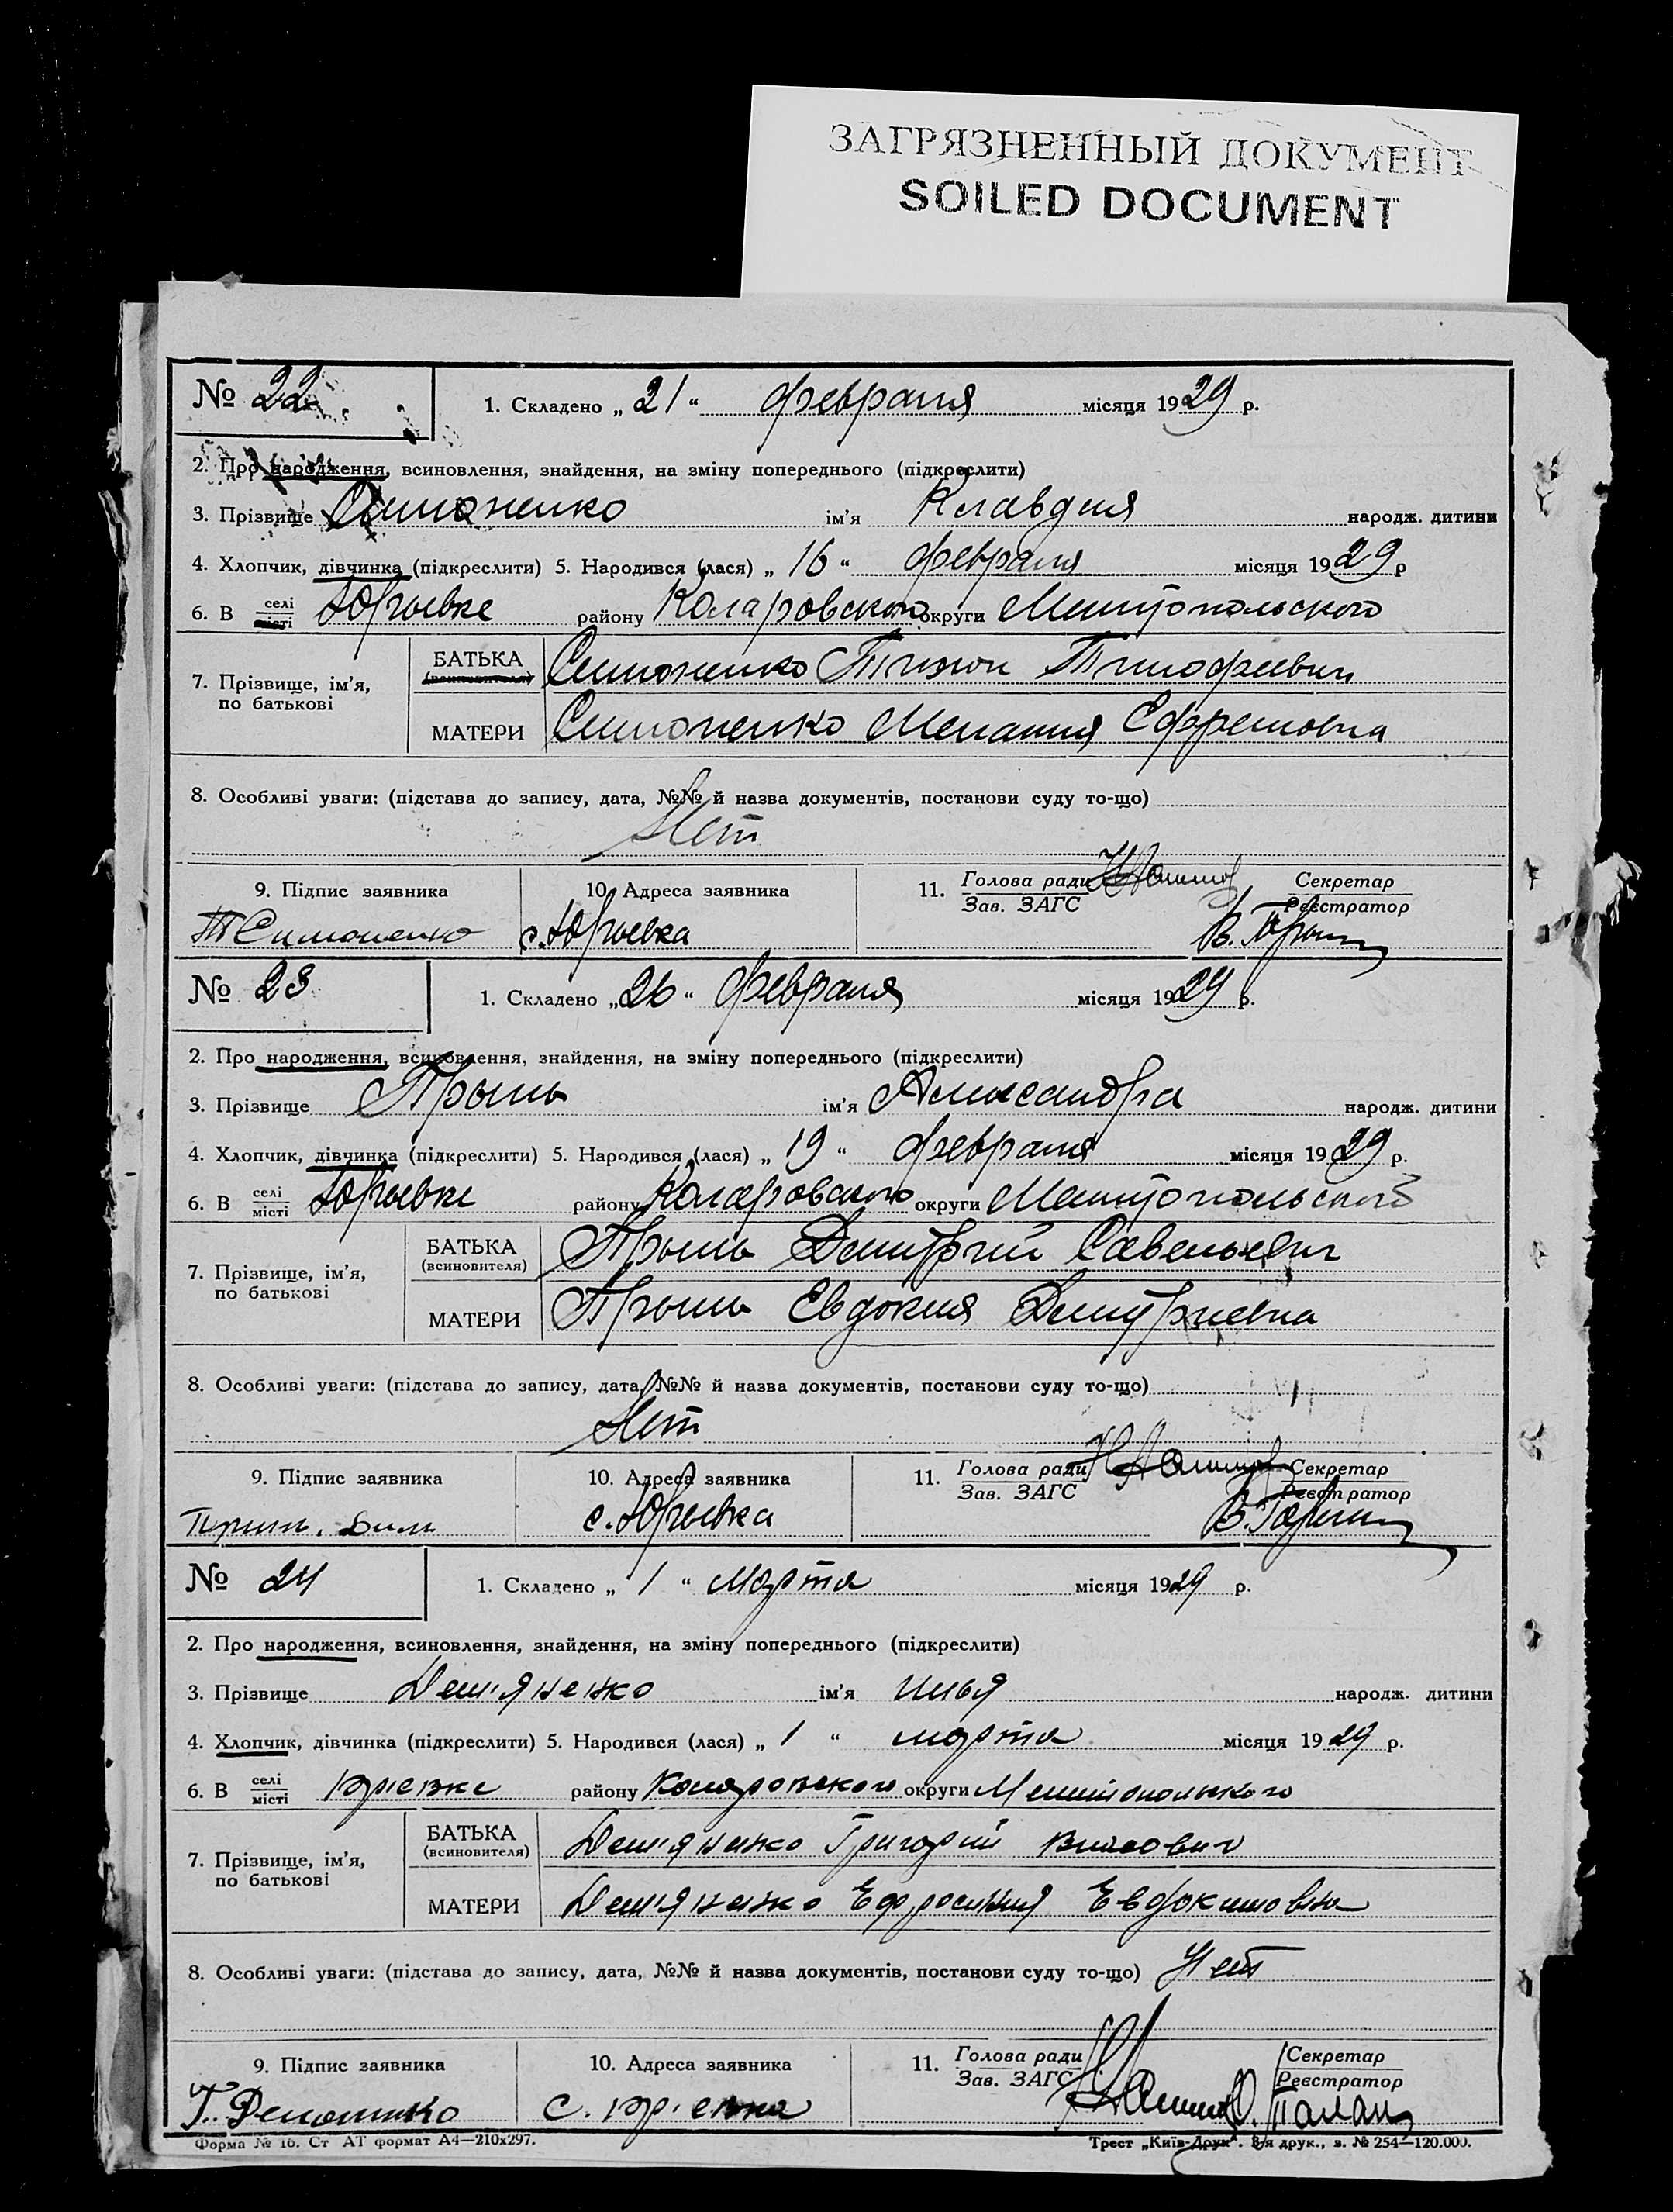 ЗАГРЯЗНЕННЫЙ ДОКУМЕНТ
SOILED DOCUMENT
№ 22
1. Складено „ 21 “ февраля місяця 1929 р.
2. Про народження, всиновлення, знайдення, на зміну попереднього (підкреслити)
3. Прізвище Симоненко ім'я Клавдия народж. дитини
4. Хлопчик, дівчинка (підкреслити) 5. Народився (лася) „ 16 “ февраля місяця 1929 р
6. В селі місті Юрьевке району Коларовского округи Мелитопольского
7. Прізвище, ім'я, по батькові
БАТЬКА (всиновителя) Симоненко Тихон Тимофеевич
МАТЕРИ Симоненко Мелания Ефремовна
8. Особливі уваги: (підстава до запису, дата, №№ й назва документів, постанови суду то-що)
Нет
9. Підпис заявника 10. Адреса заявника 11. Голова ради Зав. ЗАГС Секретар Реєстратор
Т Симоненко с. Юрьевка
№ 23
1. Складено „ 26 “ февраля місяця 1929 р.
2. Про народження, всиновлення, знайдення, на зміну попереднього (підкреслити)
3. Прізвище Прынь ім'я Александра народж. дитини
4. Хлопчик, дівчинка (підкреслити) 5. Народився (лася) „ 19 “ февраля місяця 1929 р.
6. В селі місті Юрьевке району Коларовского округи Мелитопольского
7. Прізвище, ім'я, по батькові
БАТЬКА (всиновителя) Прынь Дмитрий Савельевич
МАТЕРИ Прынь Евдокия Дмитриевна
8. Особливі уваги: (підстава до запису, дата, №№ й назва документів, постанови суду то-що)
Нет
9. Підпис заявника 10. Адреса заявника 11. Голова ради Зав. ЗАГС Секретар Реєстратор
с. Юрьевка
№ 24
1. Складено „ 1 “ марта місяця 1929 р.
2. Про народження, всиновлення, знайдення, на зміну попереднього (підкреслити)
3. Прізвище Дем'яненко ім'я Илья народж. дитини
4. Хлопчик, дівчинка (підкреслити) 5. Народився (лася) „ 1 “ марта місяця 1929 р.
6. В селі місті Юрьевке району Коларовского округи Мелитопольского
7. Прізвище, ім'я, по батькові
БАТЬКА (всиновителя) Дем'яненко Григорий
МАТЕРИ Дем'яненко Ефросиния Евдокимовна
8. Особливі уваги: (підстава до запису, дата, №№ й назва документів, постанови суду то-що) Нет
9. Підпис заявника 10. Адреса заявника 11. Голова ради Зав. ЗАГС Секретар Реєстратор
с. Юр'евка
Форма № 16. Ст АТ формат А4—210х297. Трест „Київ-Друк“. 8-я друк., з. № 254—120.000.